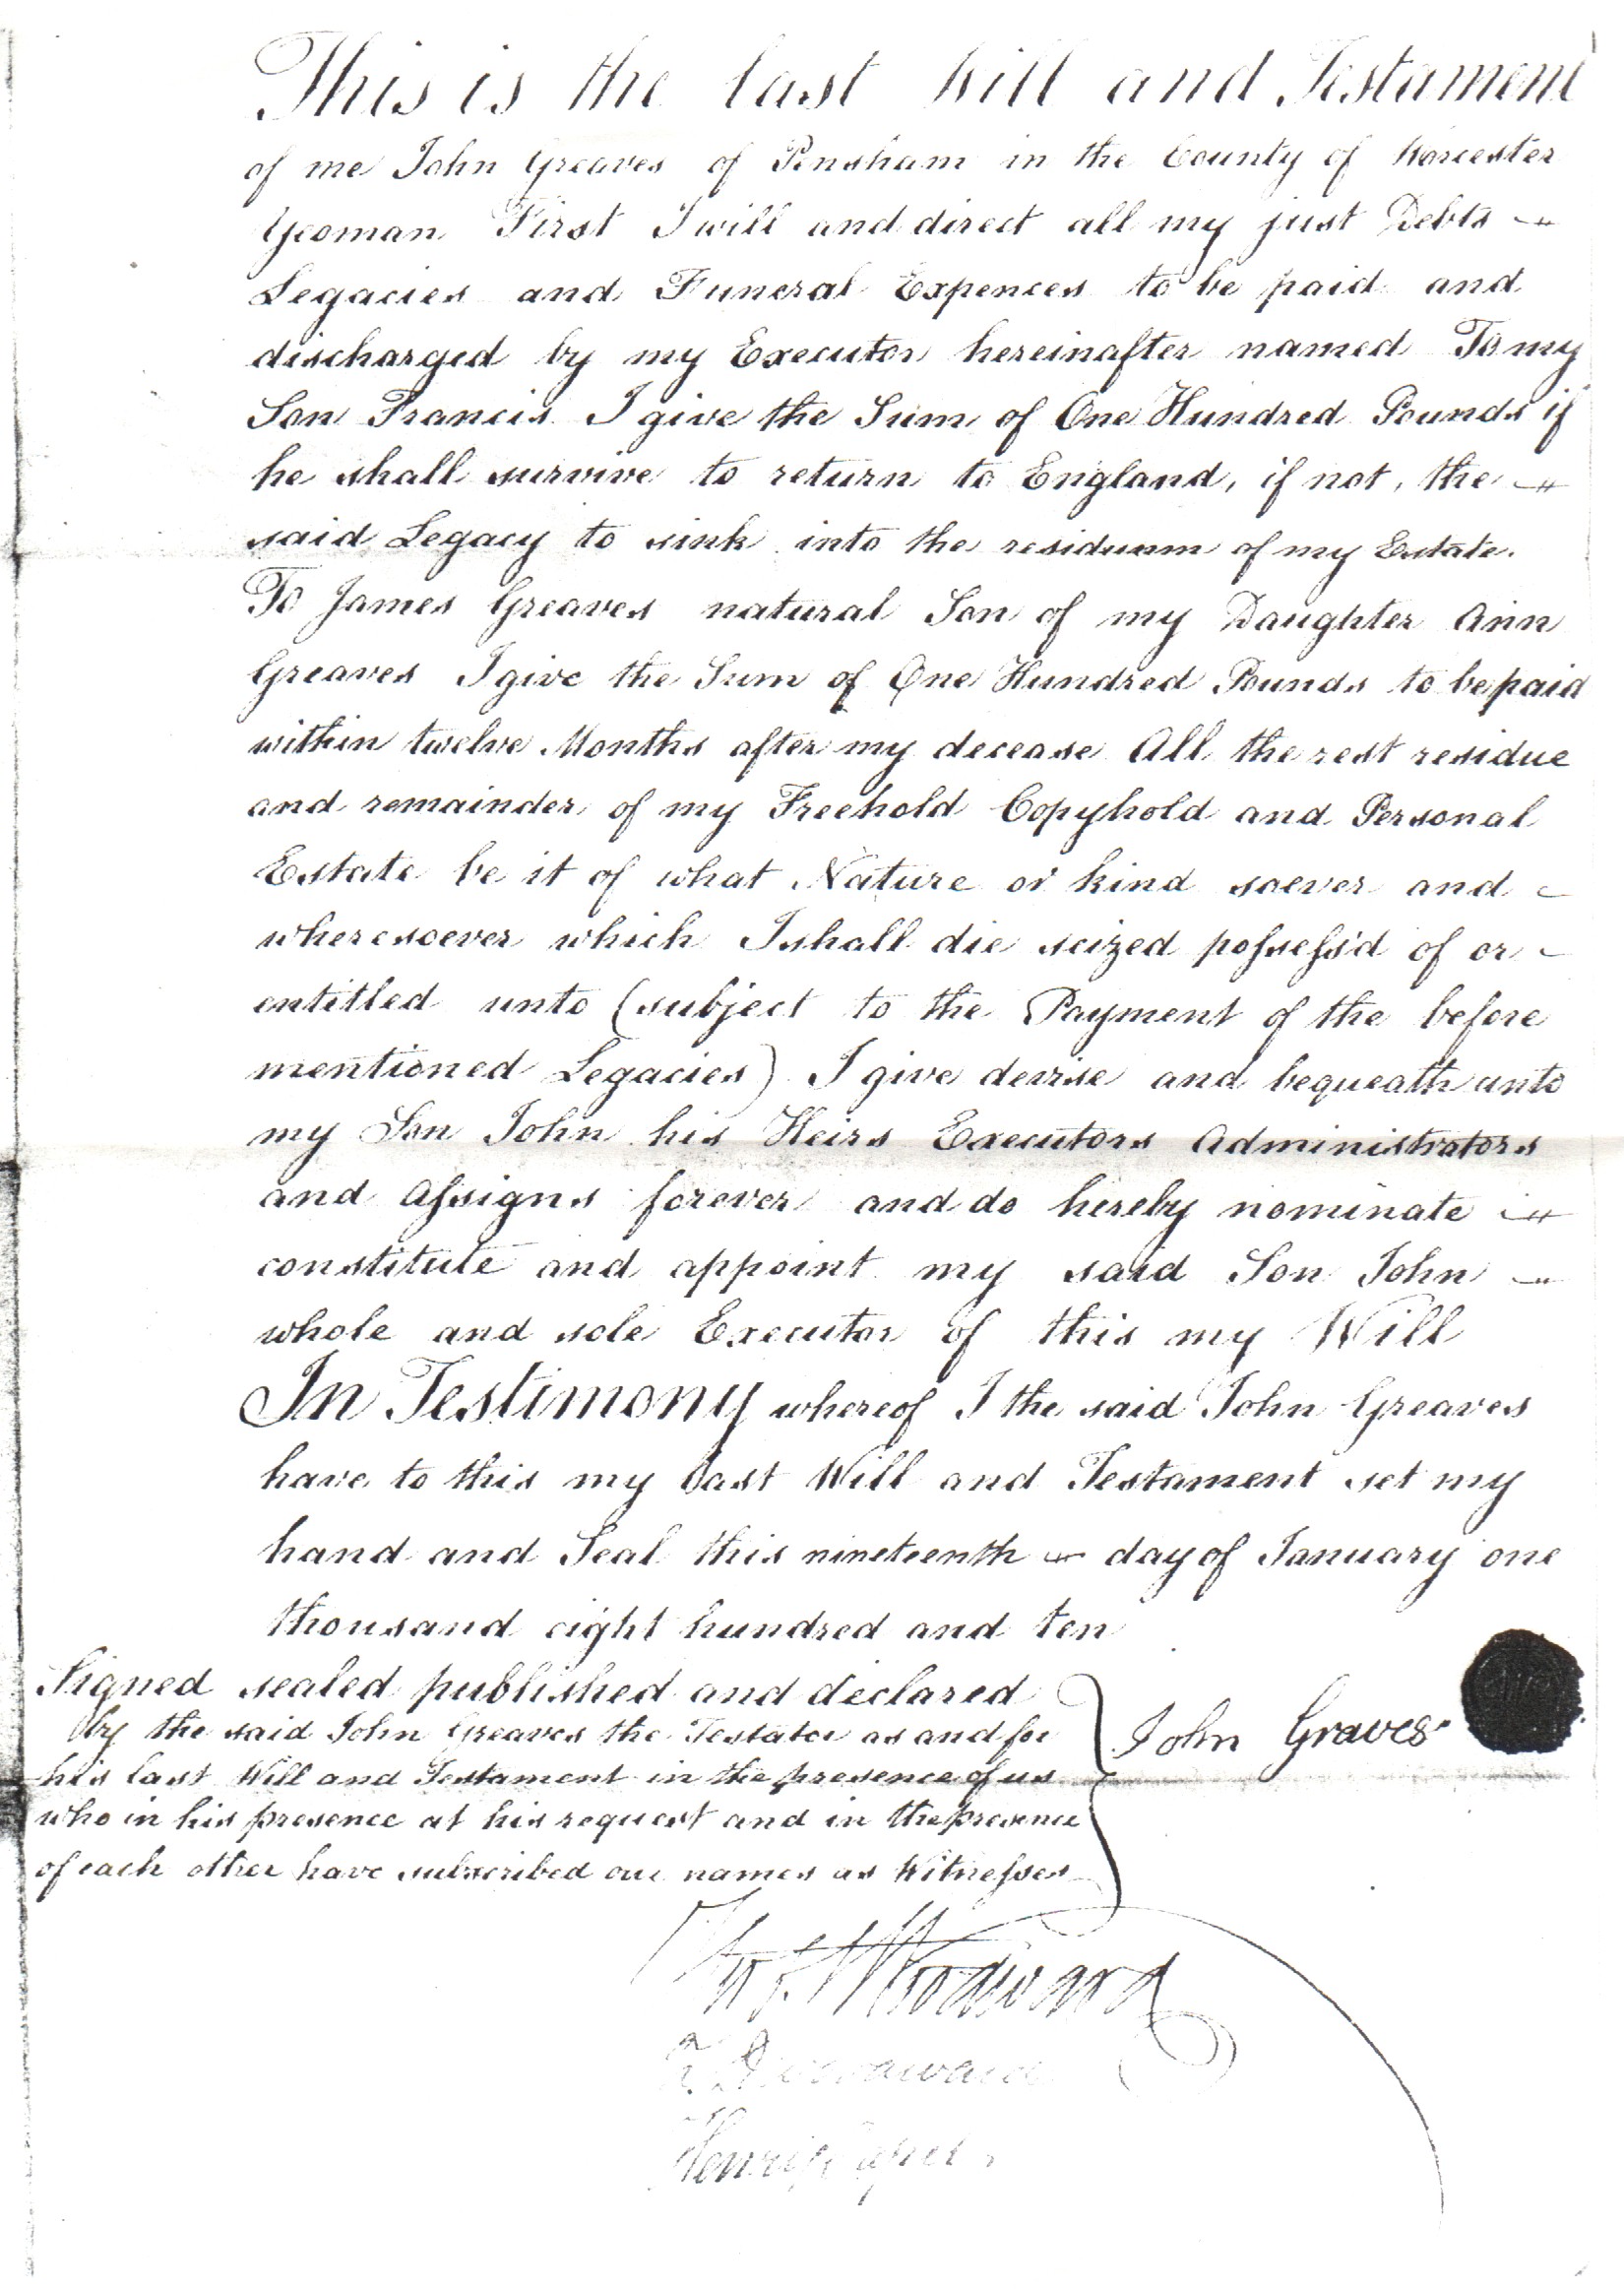 This is the last Will and Testament
of me John Greaves of Pensham in the County of Worcester
Yeoman First I will and direct all my just Debts
Legacies and Funeral Expences to be paid and
discharged by my Executor hereinafter named To my
Son Francis I give the Sum of One Hundred Pounds if
he shall survive to return to England, if not, the
said Legacy to sink into the residuum of my Estate.
To James Greaves natural Son of my Daughter Ann
Greaves I give the Sum of One Hundred Pounds to be paid
within twelve Months after my decease All the rest residue
and remainder of my Freehold Copyhold and Personal
Estate be it of what Nature or kind soever and
wheresoever which I shall die seized possess'd of or
entitled unto (subject to the Payment of the before
mentioned Legacies) I give devise and bequeath unto
my Son John his Heirs Executors Administrators
and Assigns forever and do hereby nominate
constitute and appoint my said Son John
whole and sole Executor of this my Will
In Testimony whereof I the said John Greaves
have to this my last Will and Testament set my
hand and Seal this nineteenth day of January one
thousand eight hundred and ten
Signed sealed published and declared
by the said John Greaves the Testator as and for
his last Will and Testament in the presence of us
who in his presence at his request and in the presence
of each other have subscribed our names as Witnesses
John Graves
Woodward
Henry